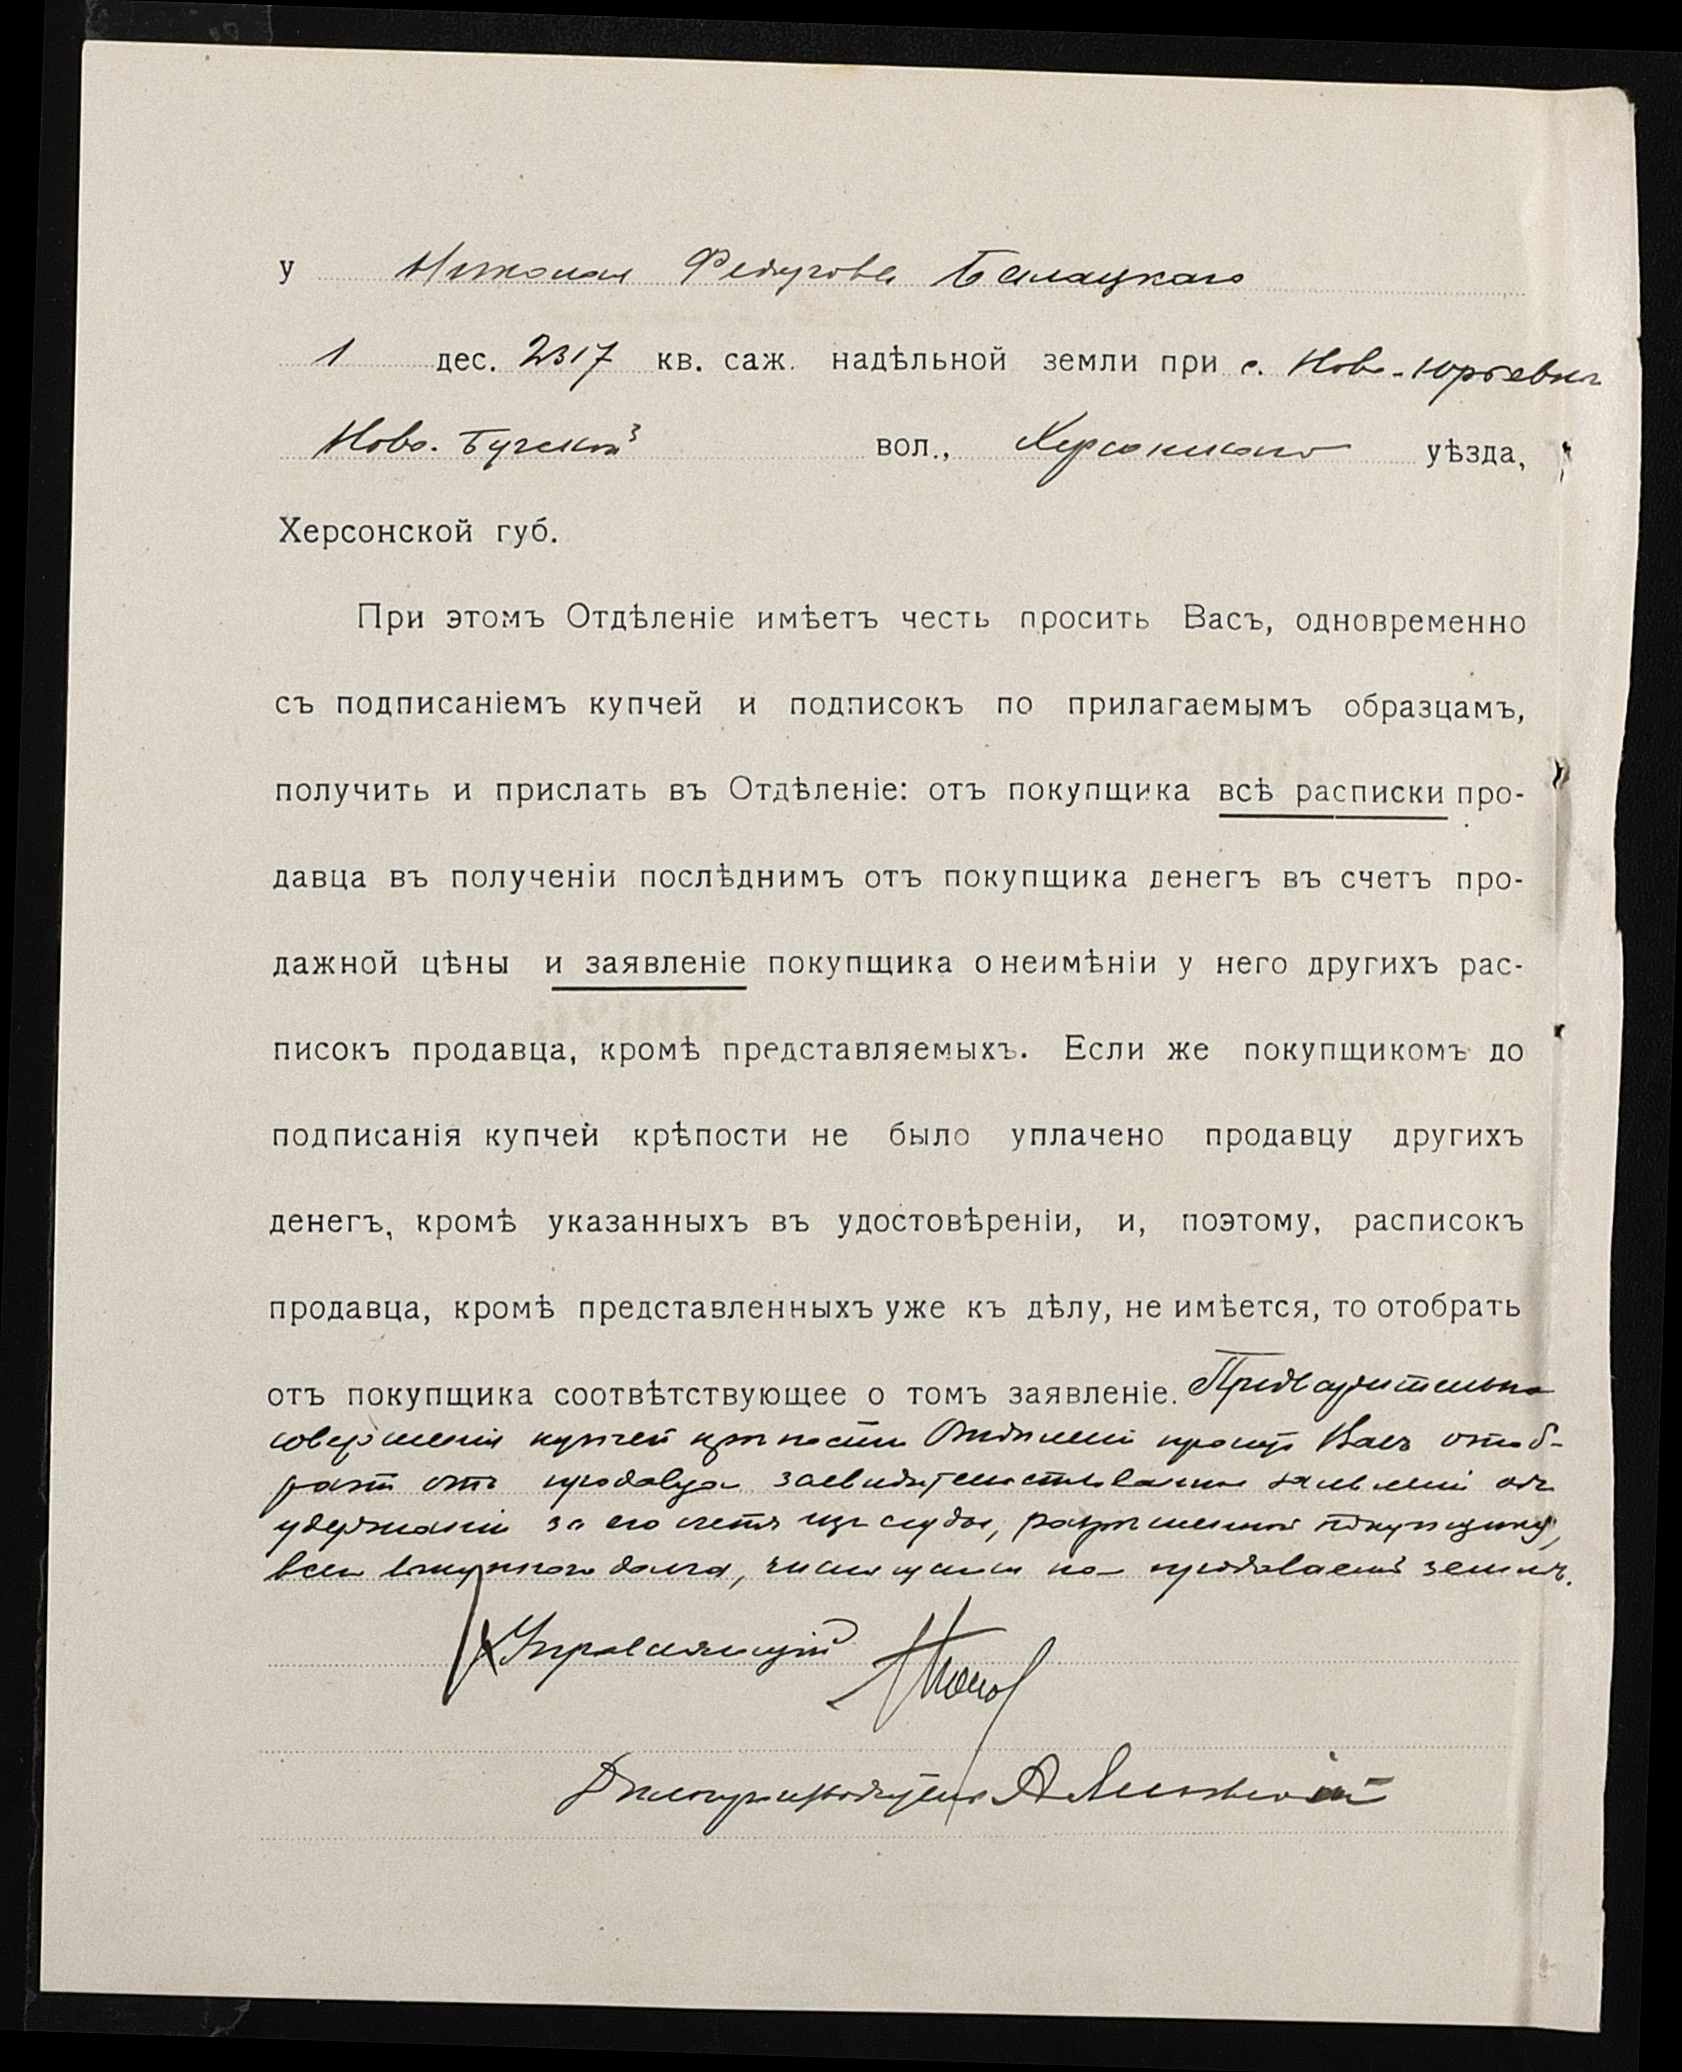 у Николая Федорова Балацкаго
1 дес. 2317 кв. саж. надѣльной земли при с. Ново-Юрьевкѣ
Ново-Бугской вол., Херсонскаго уѣзда,
Херсонской губ.
При этомъ Отдѣленіе имѣетъ честь просить Васъ, одновременно
съ подписаніемъ купчей и подписокъ по прилагаемымъ образцамъ,
получить и прислать въ Отдѣленіе: отъ покупщика всѣ расписки про-
давца въ полученіи послѣднимъ отъ покупщика денегъ въ счетъ про-
дажной цѣны и заявленіе покупщика о неимѣніи у него другихъ рас-
писокъ продавца, кромѣ представляемыхъ. Если же покупщикомъ до
подписанія купчей крѣпости не было уплачено продавцу другихъ
денегъ, кромѣ указанныхъ въ удостовѣреніи, и, поэтому, расписокъ
продавца, кромѣ представленныхъ уже къ дѣлу, не имѣется, то отобрать
отъ покупщика соотвѣтствующее о томъ заявленіе. Предварительно
совершенія купчей крѣпости Отдѣленіе проситъ Васъ отоб-
рать отъ продавца засвидѣтельствованное заявленіе объ
удержаніи за его счетъ изъ ссуды, разрѣшенной покупщику,
всего выкупного долга, числящагося на продаваемой землѣ.
Управляющій
Дѣлопроизводитель А.